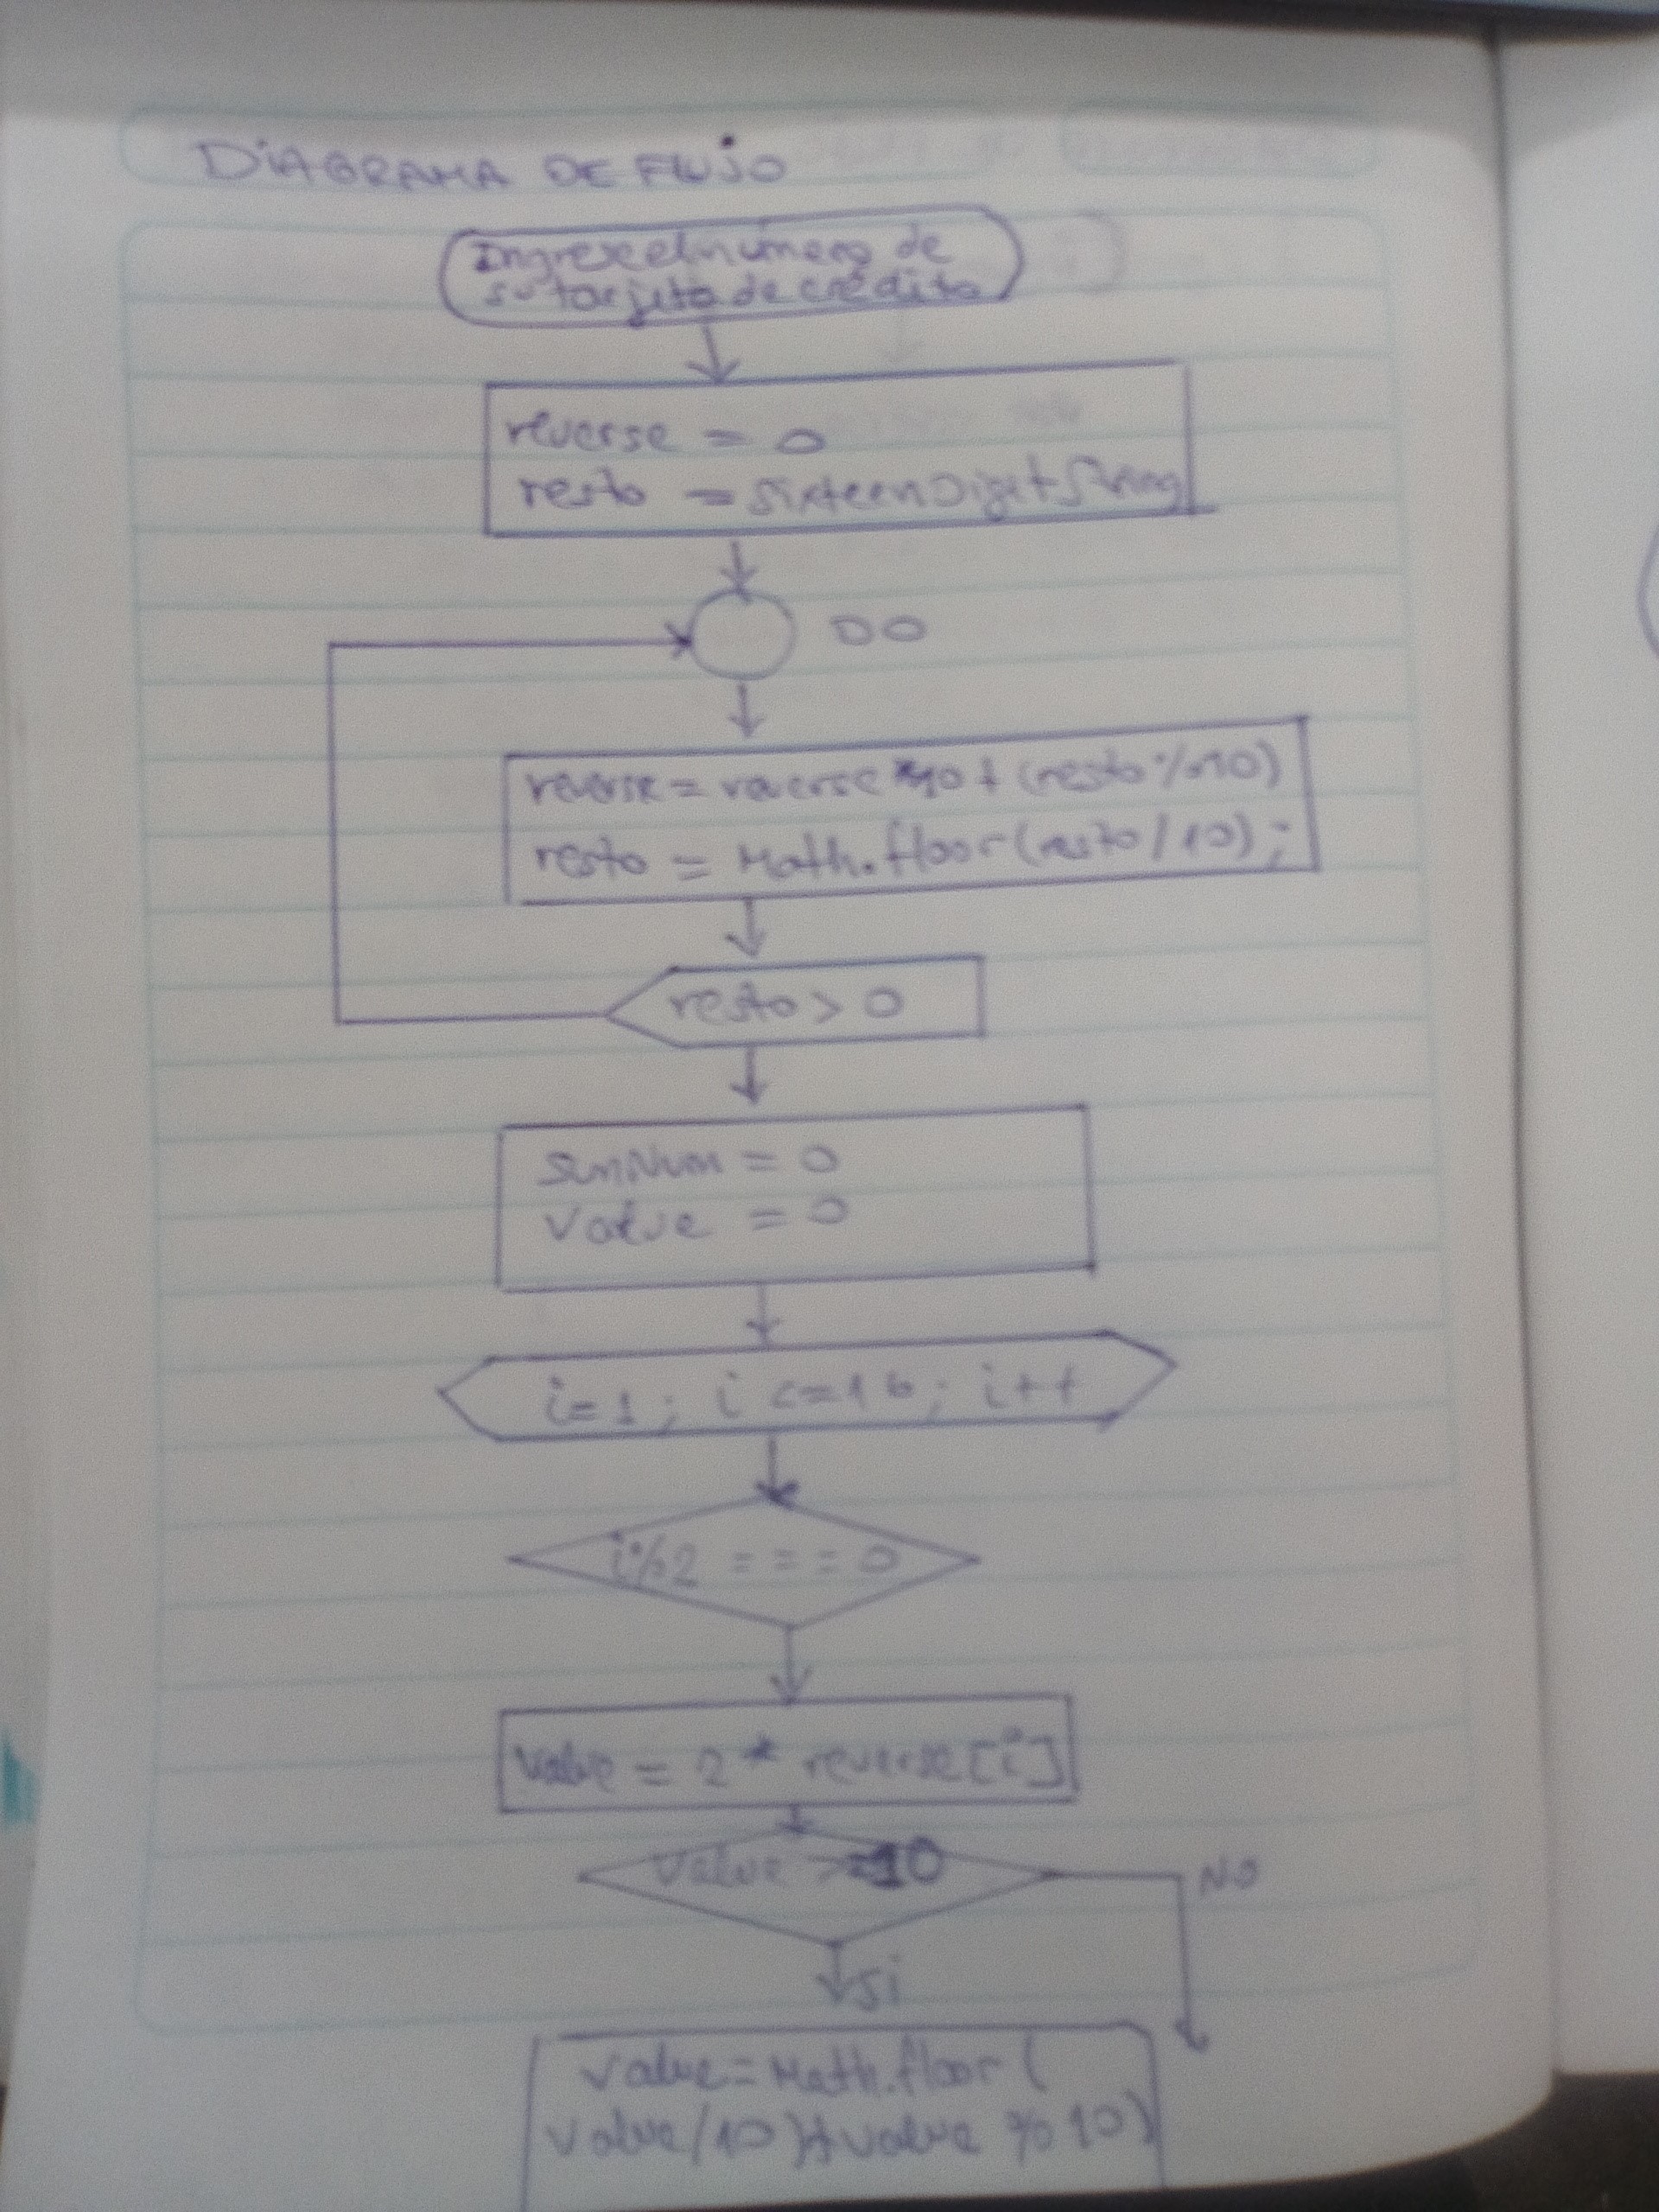 DIAGRAMA DE FLUJO
Ingrese el número de
su tarjeta de crédito
reverse = 0
resto = sixteenDigitString
DO
reverse = reverse *10 + (resto%10)
resto = Math.floor(resto/10);
resto > 0
sumNum = 0
value = 0
i=1; i <=16; i++
i%2 === 0
value = 2 * reverse[i]
value >=10
NO
si
value = Math.floor(
value/10)+(value % 10)